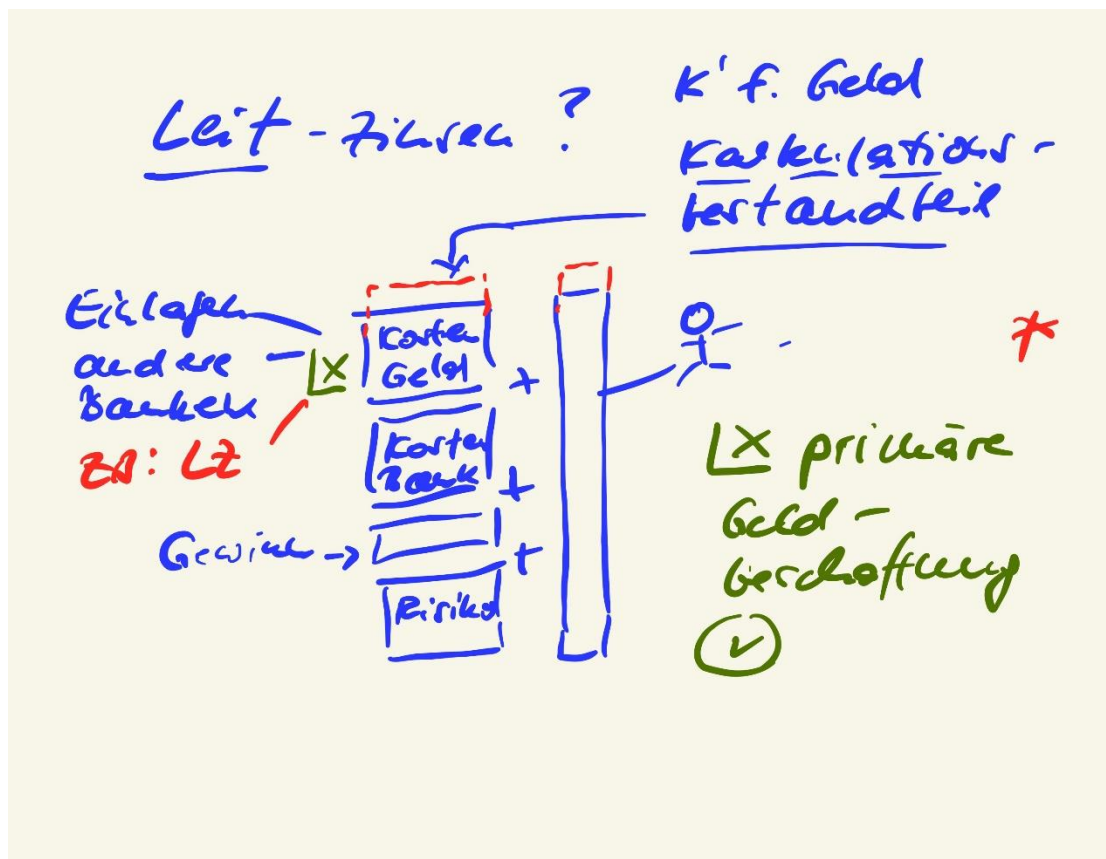 Leit - Zinsen ?
K' f. Geld
Kalkulations -
bestandteil
Einlagen
andere
Banken
ZB: LZ
Kosten
Geld
+
Kosten
Bank
+
Gewinn →
+
Risiko
X primäre
Geld -
beschaffung